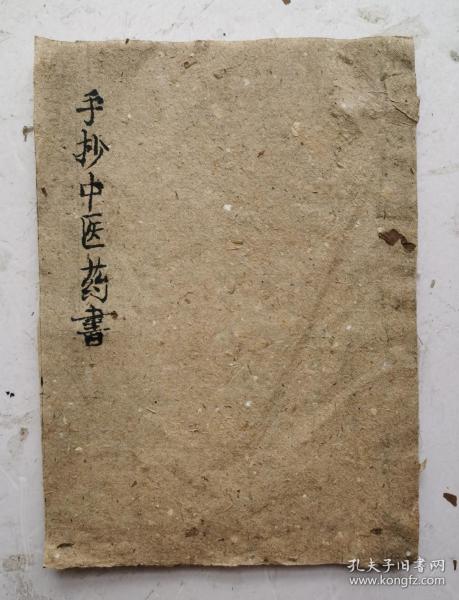 手抄中医药書
孔夫子旧书网
www.kongfz.com